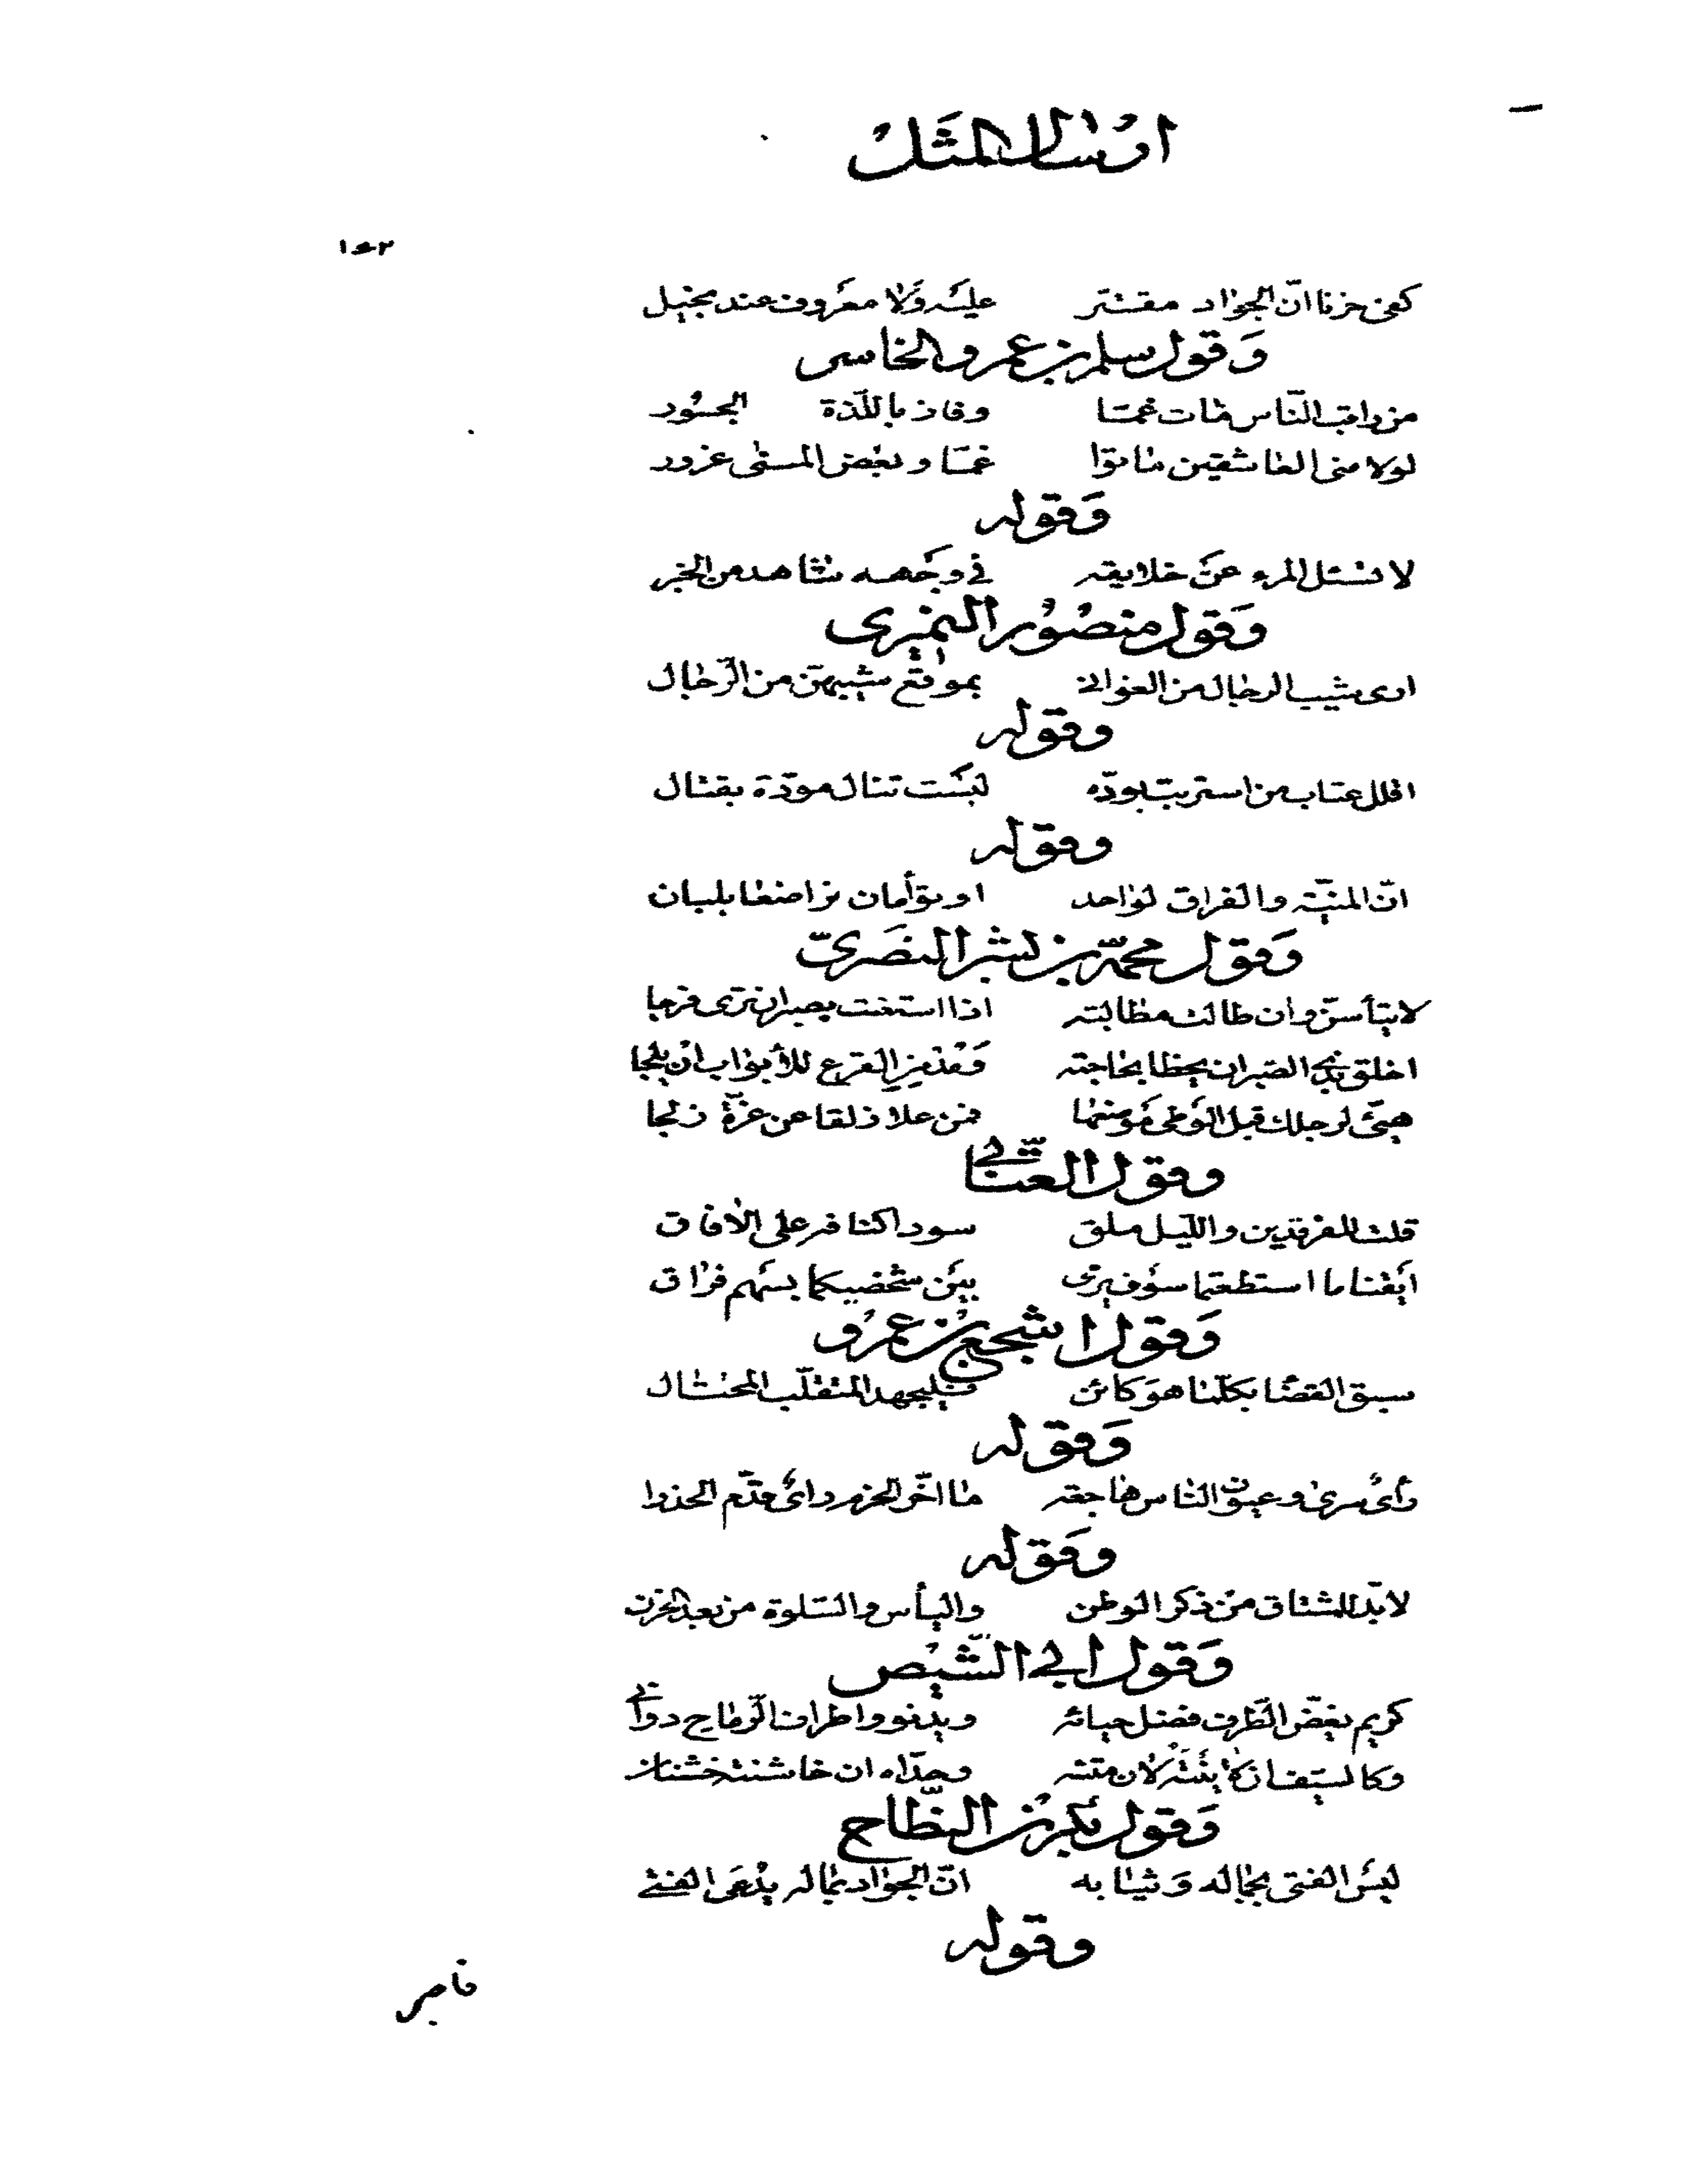 ارسال المثل
كفى حزنا انّ الجواد مقتر عليه ولا معروف عند بخيل
وقول سلم بن عمرو الخاسر
من راقب النّاس مات غمّا وفاز باللّذة الجسور
لولا منى العاشقين ماتوا غمّا وبعض المنى غرور
وقوله
لا تسئل المرء عن خلايقه في وجهه شاهد من الخبر
وقول منصور النميري
ارى شيب الرجال من الغواني بموقع شيبهنّ من الرّجال
وقوله
اقلل عتاب من استربت بودّه ليست تنال مودّة بقتال
وقوله
انّ المنيّة والفراق لواحد او توأمان تراضعا بلبان
وقول محمّد بن بشير البصريّ
لا تيأسنّ وان طالت مطالبته اذا استعنت بصبر ان ترى فرجا
اخلق بذي الصبر ان يحظا بحاجته ومدمن القرع للأبواب ان يلجا
هيّئ لرجلك قبل الوطى موضعها فمن علا زلقا عن غرّة زلجا
وقول العتّابي
قلت للفرقدين والليل ملق سود اكنافه على الافاق
ابقيا ما استطعتما سوف يرمى بين شخصيكما بسهم فراق
وقول اشجع بن عمرو
سبق القضا بكلّما هو كائن فليجهد المتقلّب المحتال
وقوله
رأى سرى وعيون النّاس هاجعة ما اخّر الحزم رأى قدّم الحذرا
وقوله
لا بدّ للمشتاق من ذكر الوطن واليأس والسّلوة من بعد الحزن
وقول ابي الشّيص
كريم يغضّ الطّرف فضل حيائه ويدنو واطراف الرّماح دواني
وكالسيف ان لاينته لان متنه وحدّاه ان خاشنته خشنان
وقول بكر بن النّطاح
ليس الفتى بجماله وثيابه انّ الجواد بماله يدعى الفتى
وقوله